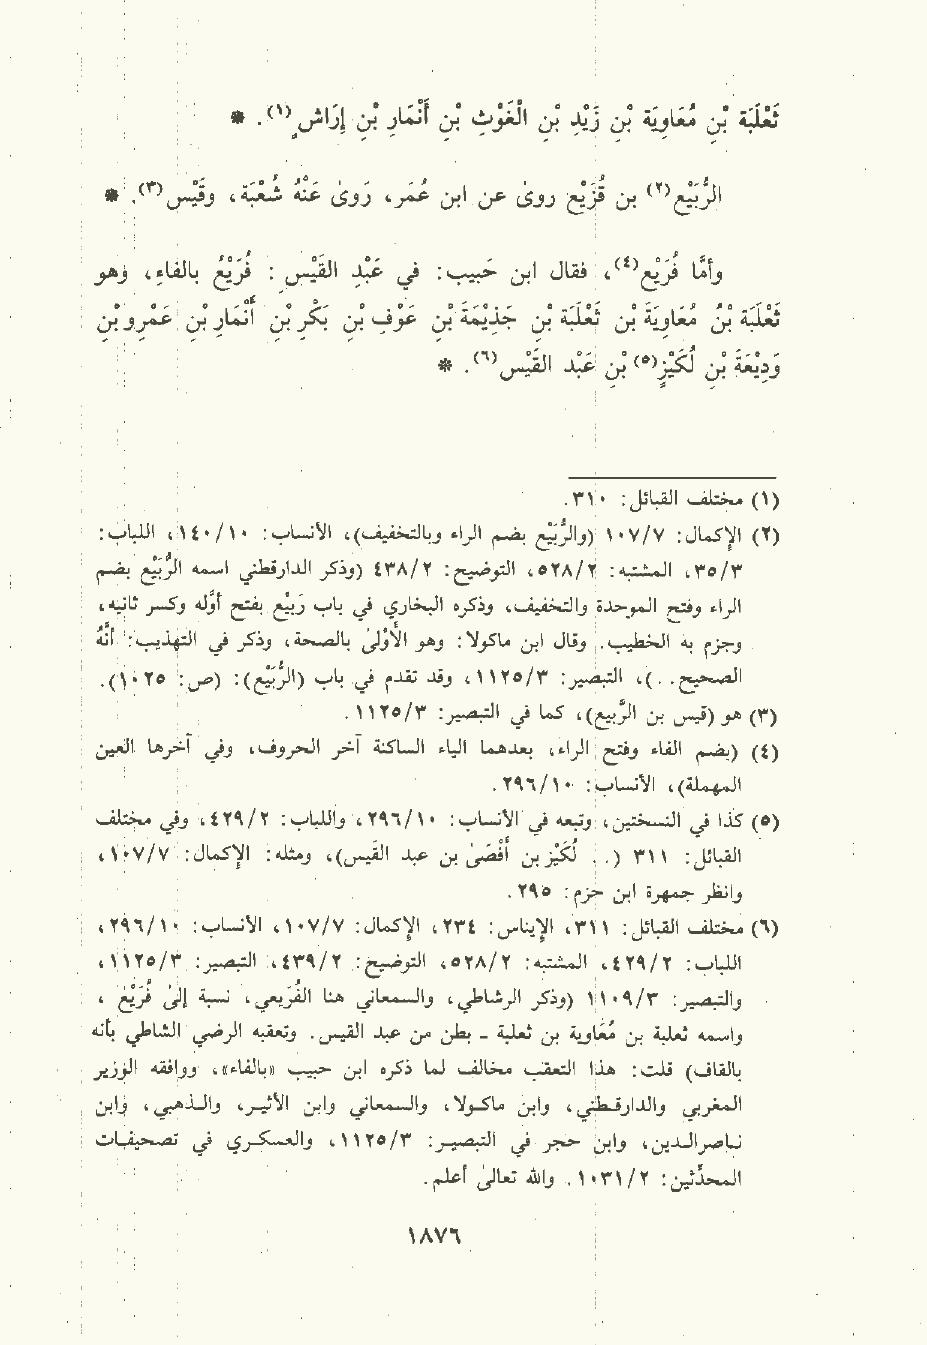 ثَعْلَبَة بْنِ مُعَاوِيَة بْنِ زَيْدِ بْنِ الْغَوْثِ بْنِ أَنْمَارِ بْنِ إِرَاشٍ(١). *
الرُّبَيْع(٢) بن قُزَيْع روىٰ عن ابن عُمَر، رَوىٰ عَنْهُ شُعْبَة، وقَيْس(٣). *
وأمَّا فُرَيْع(٤)، فقال ابن حَبيب: في عَبْدِ القَيْسِ: فُرَيْعُ بالفاءِ، وهو
ثَعْلَبَة بْنُ مُعَاوِيَةَ بْنِ ثَعْلَبَةَ بْنِ جَذِيْمَةَ بْنِ عَوْفِ بْنِ بَكْرِ بْنِ أَنْمَارِ بْنِ عَمْرِو بْنِ
وَدِيْعَةَ بْنِ لُكَيْزِ(٥) بْنِ عَبْد القَيْس(٦). *
(١) مختلف القبائل: ٣١٠.
(٢) الإكمال: ١٠٧/٧ (والرُّبَيْع بضم الراء وبالتخفيف)، الأنساب: ١٤٠/١٠، اللباب:
٣٥/٣، المشتبه: ٥٢٨/٢، التوضيح: ٤٣٨/٢ (وذكر الدارقطني اسمه الرُّبَيْع بضم
الراء وفتح الموحدة والتخفيف، وذكره البخاري في باب رَبيْع بفتح أوَّله وكسر ثانيه،
وجزم به الخطيب. وقال ابن ماكولا: وهو الأَوْلىٰ بالصحة، وذكر في التهذيب: أنَّهُ
الصحيح. .)، التبصير: ١١٢٥/٣، وقد تقدم في باب (الرُّبَيْع): (ص: ١٠٢٥).
(٣) هو (قيس بن الرَّبيع)، كما في التبصير: ١١٢٥/٣.
(٤) (بضم الفاء وفتح الراء، بعدهما الياء الساكنة آخر الحروف، وفي آخرها العين
المهملة)، الأنساب: ٢٩٦/١٠.
(٥) كذا في النسختين، وتبعه في الأنساب: ٢٩٦/١٠، واللباب: ٤٢٩/٢، وفي مختلف
القبائل: ٣١١ (. . لُكَيْز بن أَفْصَىٰ بن عبد القَيس)، ومثله: الإكمال: ١٠٧/٧،
وانظر جمهرة ابن حزم: ٢٩٥.
(٦) مختلف القبائل: ٣١١، الإيناس: ٢٣٤، الإكمال: ١٠٧/٧، الأنساب: ٢٩٦/١٠،
اللباب: ٤٢٩/٢، المشتبه: ٥٢٨/٢، التوضيح: ٤٣٩/٢، التبصير: ١١٢٥/٣،
والتبصير: ١١٠٩/٣ (وذكر الرشاطي، والسمعاني هنا الفُرَيعي، نسبة إلىٰ فُرَيْعْ،
واسمه ثعلبة بن مُعاوية بن ثعلبة - بطن من عبد القيس. وتعقبه الرضي الشاطي بأنه
بالقاف) قلت: هذا التعقب مخالف لما ذكره ابن حبيب «بالفاء»، ووافقه الوزير
المغربي والدارقطني، وابن ماكولا، والسمعاني وابن الأثير، والذهبي، وابن
ناصرالدين، وابن حجر في التبصير: ١١٢٥/٣، والعسكري في تصحيفات
المحدِّثين: ١٠٣١/٢. والله تعالىٰ أعلم.
١٨٧٦